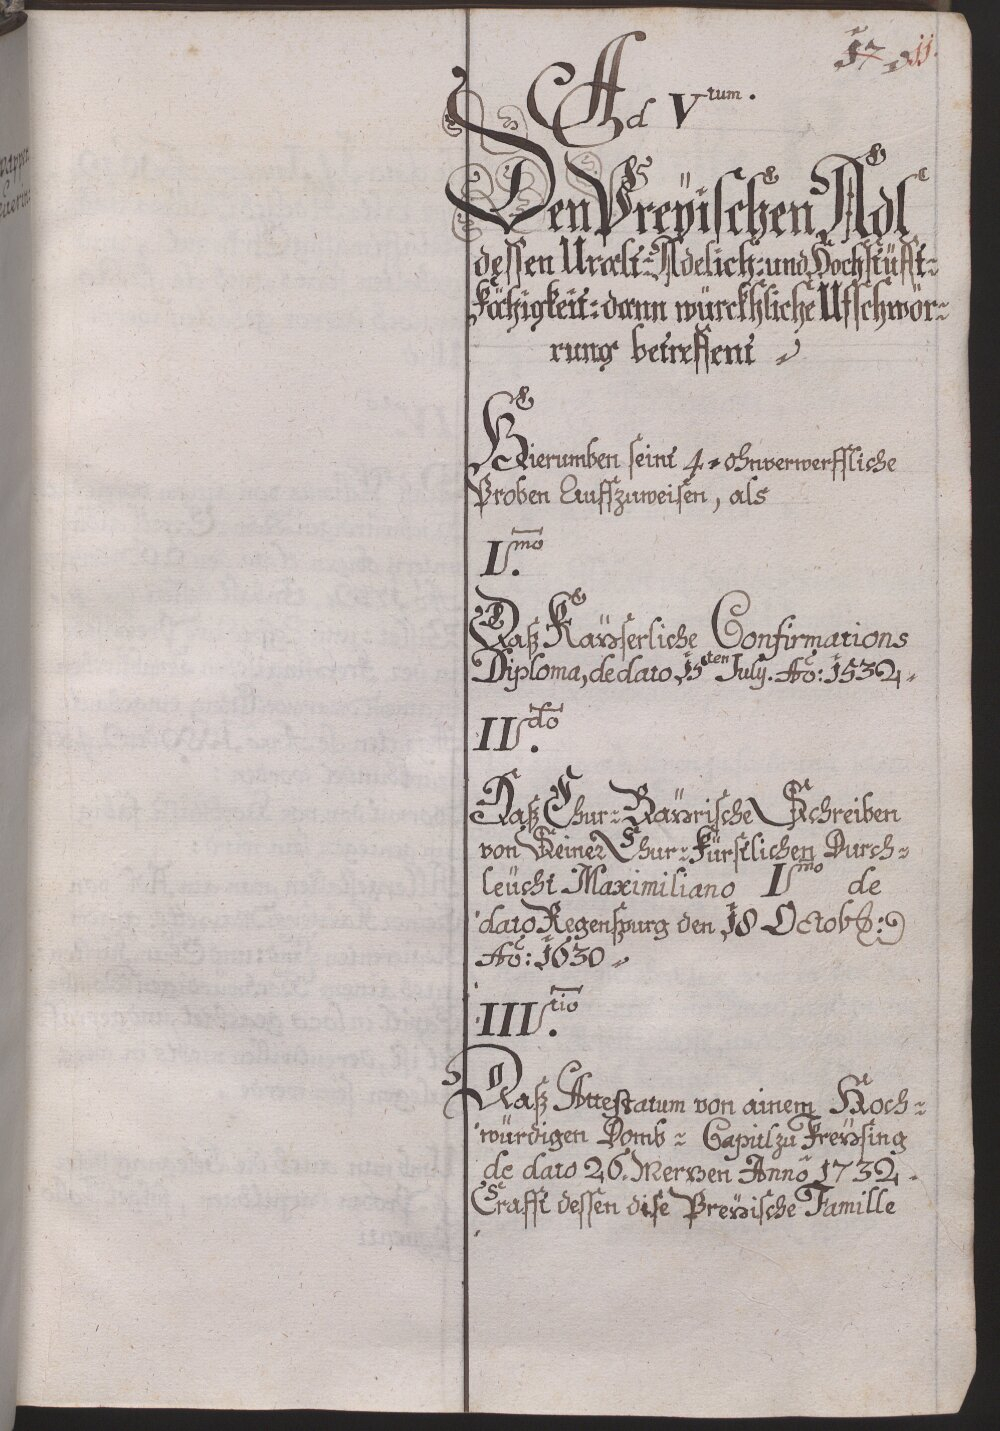 11.
Ad V<sup>tum</sup>.
Den Preÿischen Adl
dessen Uralt-Adelich: und Hochstüfft-
fähigkeit: dann würckhliche Ufschwör-
rung betreffent
Hierumben seint 4 ohnverwerffliche
Proben Auffzuweisen, als
I<sup>mo</sup>.
Daß Kaÿserliche Confirmations
Diploma, de dato 15<sup>ten</sup> Julÿ. Aõ: 1532.
II<sup>do</sup>.
Daß Chur-Baÿrische Schreiben
von Seiner Chur-Fürstlichen Durch-
leücht Maximiliano I<sup>mo</sup> de
dato Regenspurg den 18 Octob:
Aõ: 1630
III<sup>tio</sup>.
Daß Attestatum von ainem Hoch-
würdigen Domb-Capitl zu Freÿsing
de dato 26. Merzen Anno 1732.
Crafft dessen dise Preÿsische Famille